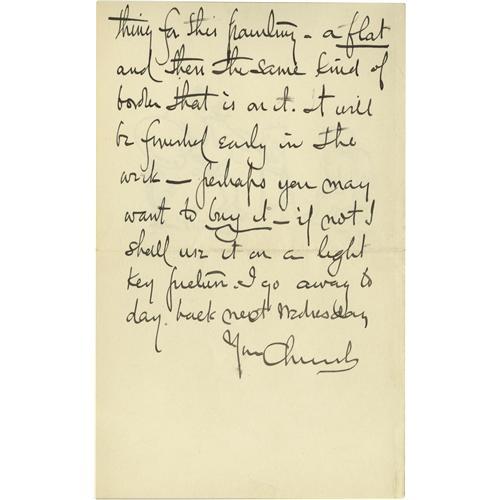 thing for this painting - a flat
and then the same kind of
border that is on it. It will
be finished early in the
week — perhaps you may
want to buy it — if not I
shall use it on a light
key picture. I go away to
day. back next Wednesday
Church